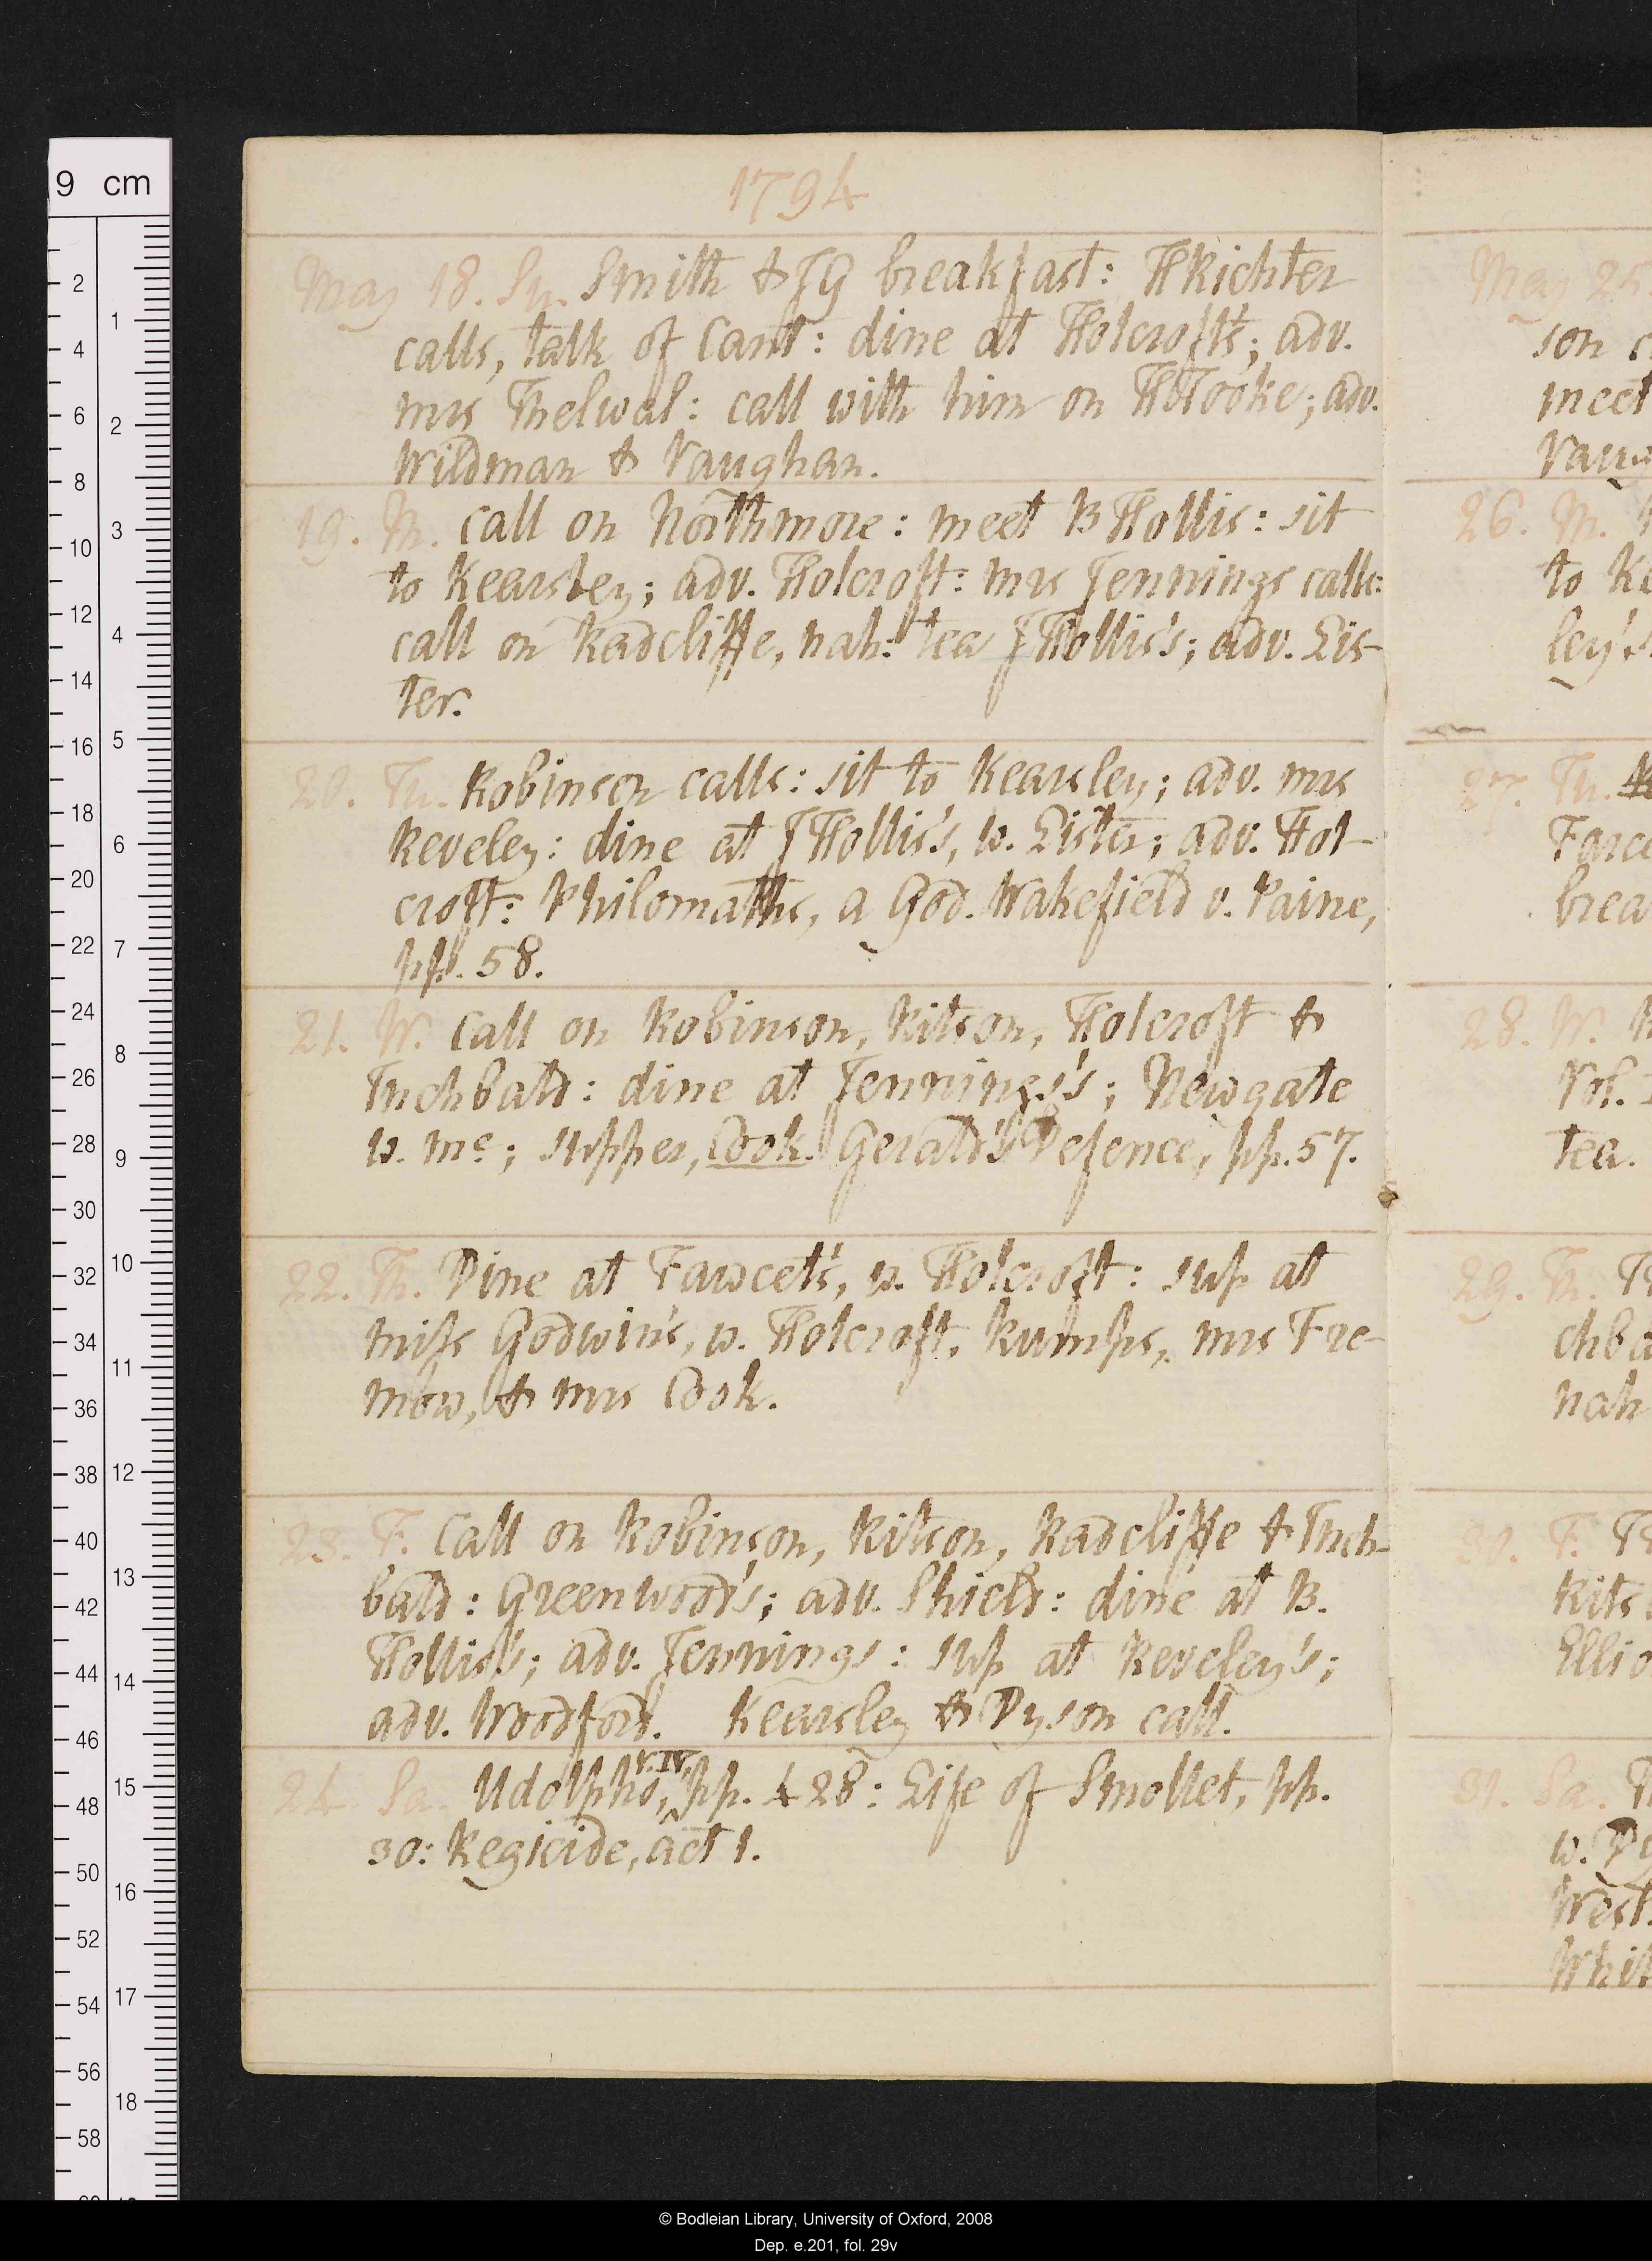 1794
May 18. Su. Smith & JG breakfast: H Richter
calls, talk of Cant: dine at Holcroft's; adv.
mrs Thelwal: call with him on H Tooke; adv.
Wildman & Vaughan.
19. M. Call on Northmore: meet B Hollis: sit
to Kearsley; adv. Holcroft: mrs Jennings calls:
call on Radcliffe, nah: tea J Hollis's; adv. Lis-
ter.
20. Tu. Robinson calls: sit to Kearsley; adv. mrs
Reveley: dine at J Hollis's, w. Lister; adv. Hol-
croft: Philomaths, a God. Wakefield v. Paine,
pp. 58.
21. W. Call on Robinson, Ritson, Holcroft &
Inchbald: dine at Jennings's; Newgate
w. me; supper, Cook. Gerald's Defence, pp. 57.
22. Th. Dine at Fawcet's, w. Holcroft: sup at
miss Godwin's, w. Holcroft, Rumps, mrs Fre-
mow, & mrs Cook.
23. F. Call on Robinson, Ritson, Radcliffe & Inch-
bald: Greenwood's; adv. Shield: dine at B.
Hollis's; adv. Jennings: sup at Reveley's;
adv. Woodford. Kearsley & Dyson call.
24 Sa. Udolpho, V. IV, pp. 428: Life of Smollet, pp.
30: Regicide, act 1.
May 25.
son
meet
Vau
26. M.
to Ke
ley's
27. Tu.
Farce
brea
28. W.
Vol.
tea.
29. Th.
chba
nah
30. F.
Rits
Ellio
31. Sa.
w. Dy
West.
Whit
9 cm
2
4
6
8
10
12
14
16
18
20
22
24
26
28
30
32
34
36
38
40
42
44
46
48
50
52
54
56
58
1
2
3
4
5
6
7
8
9
10
11
12
13
14
15
16
17
18
© Bodleian Library, University of Oxford, 2008
Dep. e.201, fol. 29v